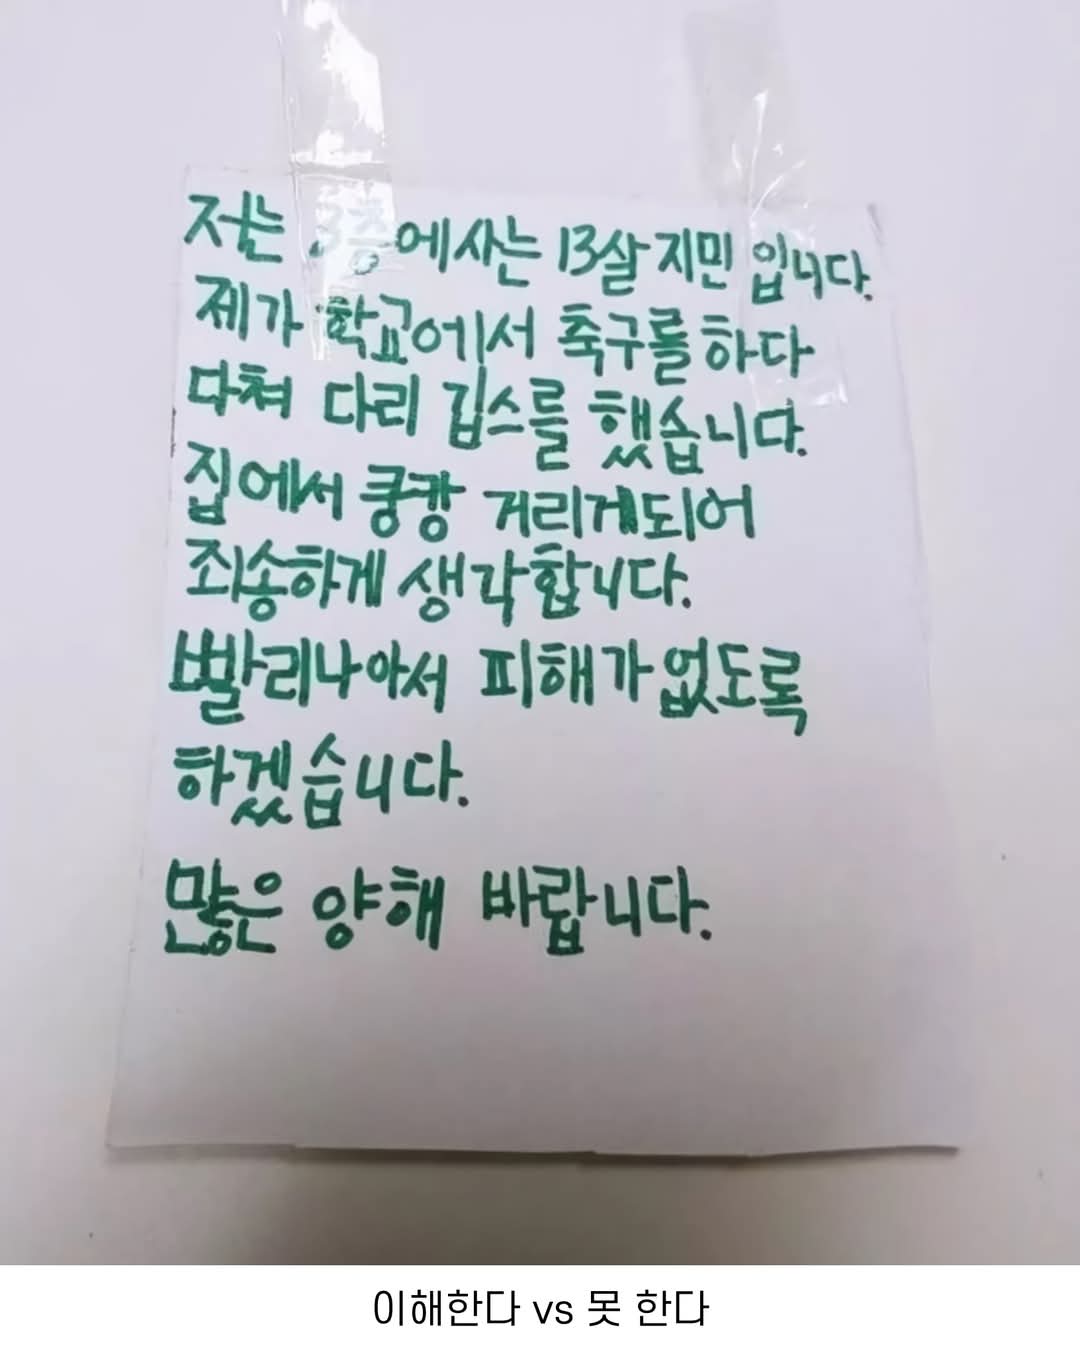 저는 3층에사는 13살 지민 입니다.
제가 학교에서 축구를 하다
다쳐 다리 깁스를 했습니다.
집에서 쿵캉 거리게되어
죄송하게 생각합니다.
빨리나아서 피해가 없도록
하겠습니다.
많은 양해 바랍니다.
이해한다 vs 못 한다